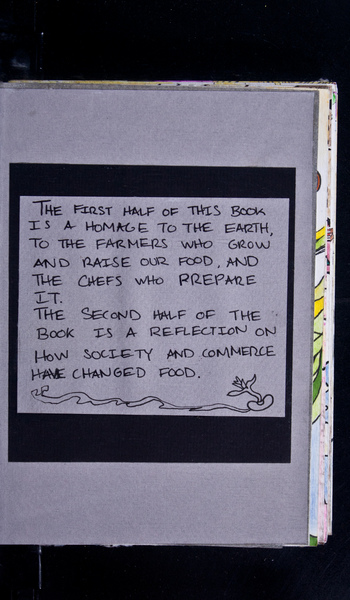 THE FIRST HALF OF THIS BOOK
IS A HOMAGE TO THE EARTH,
TO THE FARMERS WHO GROW
AND RAISE OUR FOOD, AND
THE CHEFS WHO PREPARE
IT.
THE SECOND HALF OF THE
BOOK IS A REFLECTION ON
HOW SOCIETY AND COMMERCE
HAVE CHANGED FOOD.